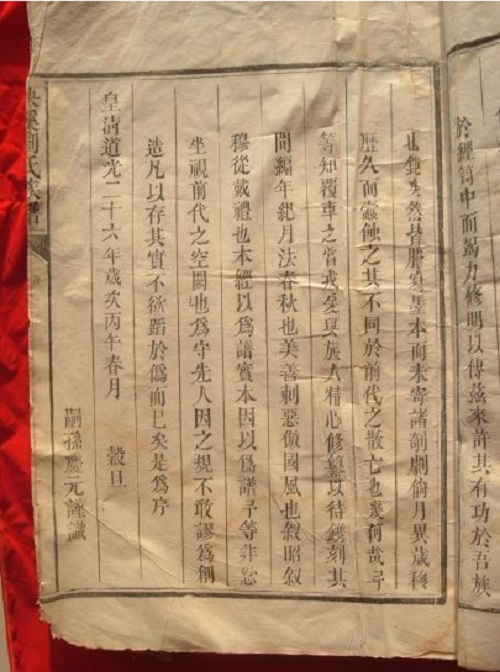 於經笥中而竭力修明以傳茲來許其有功於吾族
也鉅矣然皆謄眞本而未寄諸剞劂倘月異歲移
歷久而蠹蝕之其不同於前代之散亡也幾何哉予
等知覆車之當戒爰與族人精心修纂以待鐫刻其
間編年紀月法春秋也美善刺惡倣國風也叙昭叙
穆從戴禮也本經以為譜實本因以為譜予等非忍
坐視前代之空闕也為守先人因之規不敢謬為創
造凡以存其實不欲蹈於偽而已矣是為序
皇清道光二十六年歲次丙午春月 穀旦
嗣孫慶元謹識
劉氏族譜